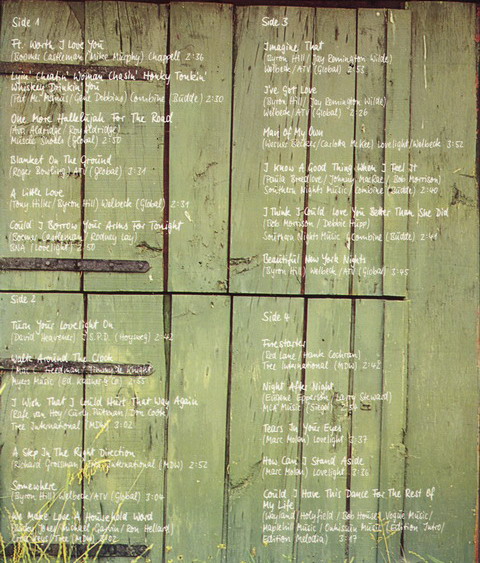 Side 1
Ft. Worth I Love You
(Boomer Castleman/Mike Murphy) Chappell 2:36
Lyin' Cheatin' Woman Chasin' Honky Tonkin'
Whiskey Drinkin' You
(Pat McManus/Gene Dobbins) Combine (Budde) 2:30
One More Hallelujah For The Road
Aldridge / Roy Aldridge)
Muscle Shoals (Global) 2:50
Blanket On The Ground
(Roger Bowling) ATV (Global) 3:21
A Little Love
(Tony Hiller/Byron Hill) Welbeck (Global) 2:31
Could I Borrow Your Arms For Tonight
(Boomer Castleman / Rodney Lay)
BNA (Lovelight) 2:50
Side 2
Turn Your Lovelight On
(David Heavener) S.S.P.D. (Hoysweg) 2:42
Walk Around The Clock
(Max C. Freedman / Jimmy De Knight)
Myers Music (Ed. Kassner & Co) 2:55
I Wish That I Could Hurt That Way Again
(Rafe van Hoy/Curly Putman/Don Cook)
Tree International (MDW) 3:02
A Step In The Right Direction
(Richard Grossman) International (MDW) 2:52
Somewhere
(Byron Hill) Welbeck/ATV (Global) 3:04
We Make Love A Household Word
Michael Garvin / Ron Hellard)
Cross Keys/Tree (MDW) 3:02
Side 3
Imagine That
(Byron Hill/Jay Remington Wilde)
Welbeck/ATV (Global) 2:53
I've Got Love
(Byron Hill/Jay Remington Wilde)
Welbeck/ATV (Global) 2:26
Man Of My Own
(Werner Becker/Carlotta McKee) Lovelight/Welbeck 3:52
I Know A Good Thing When I Feel It
(Paula Breedlove/Johnny MacRae/Bob Morrison)
Southern Nights Music/Combine (Budde) 2:40
I Think I Could Love You Better Than She Did
(Bob Morrison / Debbie Hupp)
Southern Nights Music / Combine (Budde) 2:41
Beautiful New York Nights
(Byron Hill) Welbeck/ATV (Global) 3:45
Side 4
Firestarter
(Red Lane/Hank Cochran)
Tree International (MDW) 2:42
Night After Night
(Eugene Epperson/Larry Steward)
MCA Music (Siegel) 2:54
Tears In Your Eyes
(Marc Molan) Lovelight 3:37
How Can I Stand Aside
(Marc Molan) Lovelight 3:36
Could I Have This Dance For The Rest Of
My Life
(Wayland Holyfield / Bob House) Vogue Music/
Maplehill Music / Onhisown Music (Edition Intro/
Edition Melodia) 3:17